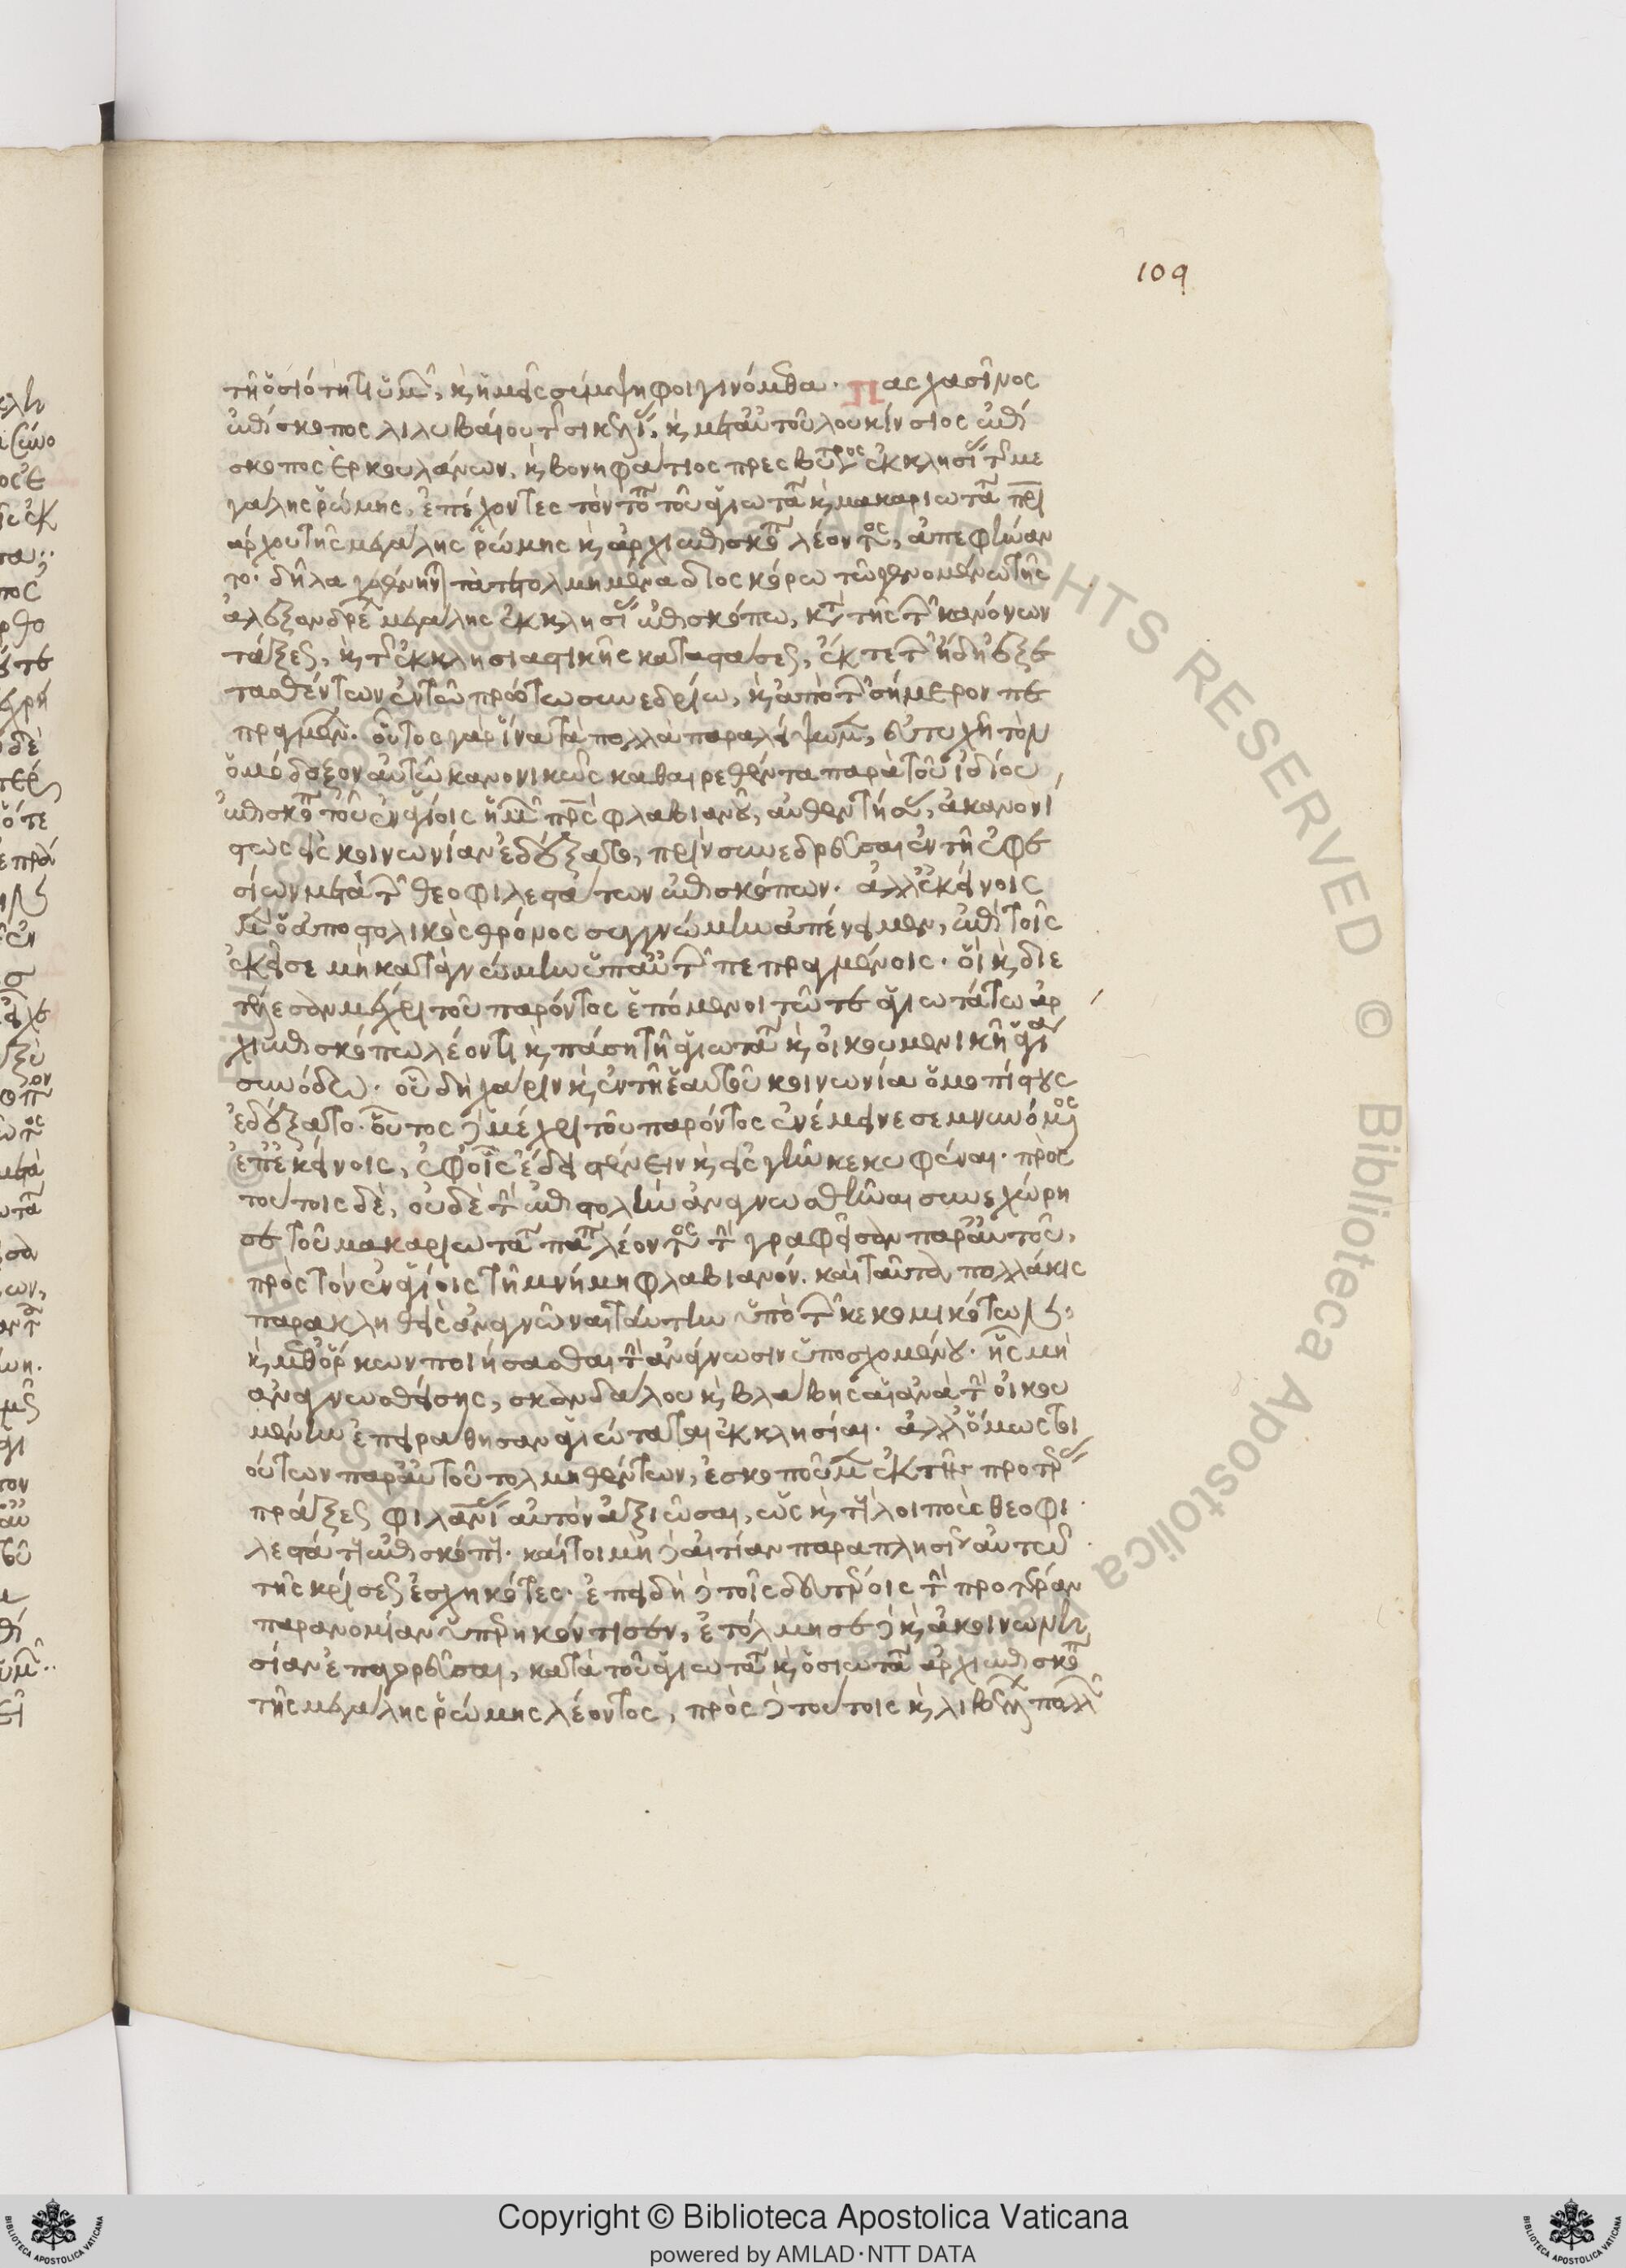 109
τῇ ὁσιότητι ὑμῶν, καὶ ἡμεῖς σύμψηφοι γινόμεθα. Πασχασῖνος
ἐπίσκοπος λιλυβαίου τῆς σικελίας, καὶ μετ' αὐτοῦ λουκίνσιος ἐπί
σκοπος ἑρκουλάνων, καὶ βονηφάτιος πρεσβύτερος ἐκκλησίας τῆς με
γάλης ῥώμης, ἐπέχοντες τὸν τόπον τοῦ ἁγιωτάτου καὶ μακαριωτάτου πατρι
άρχου τῆς μεγάλης ῥώμης καὶ ἀρχιεπισκόπου λέοντος, ἀπεφήναν
το. δῆλα γεγένηνται τὰ τετολμημένα διοσκόρῳ τῷ γενομένῳ τῆς
ἀλεξανδρέων μεγάλης ἐκκλησίας ἐπισκόπῳ, κατὰ τῆς τῶν κανόνων
τάξεως, καὶ τῆς ἐκκλησιαστικῆς καταστάσεως, ἔκ τε τῶν ἤδη ἐξε
τασθέντων ἐν τῷ πρώτῳ συνεδρίῳ, καὶ ἀπὸ τῶν σήμερον πε
πραγμένων. οὗτος γὰρ ἵνα τὰ πολλὰ παραλείψωμεν, εὐτυχῆ τὸν
ὁμόδοξον αὐτῷ κανονικῶς καθαιρεθέντα παρὰ τοῦ ἰδίου
ἐπισκόπου τοῦ ἐν ἁγίοις ἡμῶν πατρὸς φλαβιανοῦ, αὐθεντήσας, ἀκανονί
στως εἰς κοινωνίαν ἐδέξατο, πρὶν συνεδρεῦσαι ἐν τῇ ἐφε
σίων μετὰ τῶν θεοφιλεστάτων ἐπισκόπων. ἀλλ' ἐκείνοις
μὲν ὁ ἀποστολικὸς θρόνος συγγνώμην ἀπένειμεν, ἐπὶ τοῖς
ἐκεῖσε μὴ κατὰ γνώμην ὑπ' αὐτῶν πεπραγμένοις. οἳ καὶ διε
τέλεσαν μέχρι τοῦ παρόντος ἑπόμενοι τῷ τε ἁγιωτάτῳ ἀρ
χιεπισκόπῳ λέοντι καὶ πάσῃ τῇ ἁγιωτάτῃ καὶ οἰκουμενικῇ ἁγίᾳ
συνόδῳ. οὗ δὴ χάριν καὶ ἐν τῇ ἑαυτοῦ κοινωνίᾳ ὁμοπίστους
ἐδέξατο. οὗτος δὲ μέχρι τοῦ παρόντος ἐνέμεινε σεμνυνόμενος
ἐπ' ἐκείνοις, ἐφ' οἷς ἔδει στένειν καὶ εἰς γῆν κεκυφέναι. πρὸς
τούτοις δὲ, οὐδὲ τὴν ἐπιστολὴν ἀναγνωσθῆναι συνεχώρη
σε τοῦ μακαριωτάτου πάπα λέοντος τὴν γραφεῖσαν παρ' αὐτοῦ,
πρὸς τὸν ἐν ἁγίοις τῇ μνήμῃ φλαβιανόν. καὶ ταῦτα πολλάκις
παρακληθεὶς ἀναγνῶναι ταύτην ὑπὸ τῶν κεκομικότων.
καὶ μεθ' ὅρκων ποιήσασθαι τὴν ἀνάγνωσιν ὑποσχομένου. ἧς μὴ
ἀναγνωσθείσης, σκανδάλου καὶ βλάβης αἱ ἀνὰ τὴν οἰκου
μένην ἐπειράθησαν ἁγιώταται ἐκκλησίαι. ἀλλ' ὅμως τοι
ούτων παρ' αὐτοῦ τολμηθέντων, ἐσκοποῦμεν ἐκ τῆς προτέρας
πράξεως φιλανθρωπίας αὐτὸν ἀξιῶσαι, ὡς καὶ τοὺς λοιποὺς θεοφι
λεστάτους ἐπισκόπους. καίτοι μὴ δὲ αἰτίαν παραπλησίαν αὐτῷ
τῆς κρίσεως ἐσχηκότες. ἐπειδὴ δὲ τοῖς δευτέροις τὴν προτέραν
παρανομίαν ὑπερηκόντισεν, ἐτόλμησε δὲ καὶ ἀκοινωνη
σίαν ὑπαγορεῦσαι, κατὰ τοῦ ἁγιωτάτου καὶ ὁσιωτάτου ἀρχιεπισκόπου
τῆς μεγάλης ῥώμης λέοντος, πρὸς δὲ τούτοις καὶ λιβέλλων πολλῶν
Copyright © Biblioteca Apostolica Vaticana
powered by AMLAD·NTT DATA